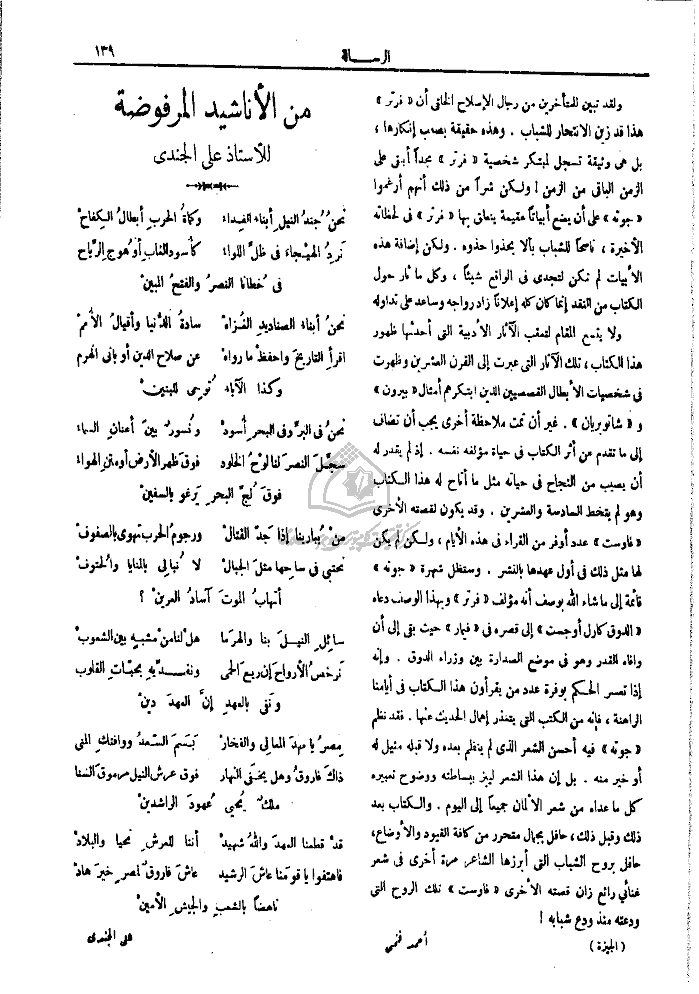 ١٣٩
الرسالة
ولقد تبين للمتأخرين من رجال الإصلاح الخلقى أن « فرتر »
هذا قد زين الانتحار للشباب . وهذه حقيقة يصعب إنكارها ،
بل هى وثيقة تسجل لمبتكر شخصية « فرتر » مجداً أبقى على
الزمن الباقى من الزمن ! ولكن شراً من ذلك أنهم أرغموا
« جوته » على أن يضع أبياتاً عقيمة ينطق بها « فرتر » فى لحظاته
الأخيرة ، ناصحاً للشباب بألا يحذوا حذوه . ولكن إضافة هذه
الأبيات لم تكن لتجدى فى الواقع شيئاً ، وكل ما ثار حول
الكتاب من النقد إنما كان كله إعلاناً زاد رواجه وساعد على تداوله
ولا يتسع المقام لتعقب الآثار الأدبية التى أحدثها ظهور
هذا الكتاب ، تلك الآثار التى عبرت إلى القرن العشرين وظهرت
فى شخصيات الأبطال القصصيين الذين ابتكرهم أمثال « بيرون »
و « شاتوبريان » . غير أن ثمت ملاحظة أخرى يجب أن تضاف
إلى ما تقدم عن أثر الكتاب فى حياة مؤلفه نفسه . إذ لم يقدر له
أن يصيب من النجاح فى حياته مثل ما أتاح له هذا الكتاب
وهو لم يتخط السادسة والعشرين . وقد يكون لقصته الأخرى
« فاوست » عدد أوفر من القراء فى هذه الأيام ، ولكن لم يكن
لها مثل ذلك فى أول عهدها بالنشر . وستظل شهرة « جوته »
قائمة إلى ما شاء الله بوصف أنه مؤلف « فرتر » وبهذا الوصف دعاه
« الدوق كارل أوجست » إلى قصره فى « فيمار » حيث بقى إلى أن
وافاه القدر وهو فى موضع الصدارة بين وزراء الدوق . وإنه
إذا تعسر الحكم بوفرة عدد من يقرأون هذا الكتاب فى أيامنا
الراهنة ، فإنه من الكتب التى يتعذر إهمال الحديث عنها . فقد نظم
« جوته » فيه أحسن الشعر الذى لم ينظم بعده ولا قبله مثيل له
أو خير منه . بل إن هذا الشعر ليبز ببساطته ووضوح تعبيره
كل ما عداه من شعر الألمان جميعاً إلى اليوم . والكتاب بعد
ذلك وقبل ذلك ، حافل بجمال متحرر من كافة القيود والأوضاع ،
حافل بروح الشباب التى أبرزها الشاعر مرة أخرى فى شعر
غنائى رائع زان قصته الأخرى « فاوست » تلك الروح التى
ودعته منذ ودع شبابه !
( الجيزة ) أحمد فتحى
من الأناشيد المرفوضة
للأستاذ على الجندى
نحنُ جندُ النيلِ أبناءُ الفداءْ وكماةُ الحربِ أبطالُ الكفاحْ
نردُ الهيجاءَ فى ظلِّ اللواءْ كأسود الغاب أو هوج الرِّياح
فى خطانا النصرُ والفتحُ المبينْ
نحنُ أبناءُ الصناديدِ الغزاهْ سادةُ الدُّنيا وأقيالُ الأممْ
اقرأ التاريخَ واحفظْ ما رواهْ عن صلاح الدين أو بانى الهرم
وكذا الآباءُ تُوحِى للبنينْ
نحنُ فى البرِّ وفى البحرِ أسودْ ونُسورٌ بينَ أعنانِ السماءْ
سجّلَ النصرَ لنا لوحُ الخلود فوق ظهر الأرض أو متن الهواءْ
فوقَ لُجِّ البحرِ يرغو بالسفينْ
منْ يُبارينا إذا جدَّ القتالْ ورجومُ الحرب تهوى بالصفوفْ
نحتبى فى ساحِها مثلَ الجبالْ لا نُبالِى بالمنايا والحتوفْ
أتهابُ الموتَ آسادُ العرينْ ؟
سائلِ النيلَ بنا والهرما هل لنا من مشبهٍ بين الشعوبْ
نرخص الأرواح إن ريع الحمى ونفدِّيهِ بحبَّاتِ القلوبْ
ونفى بالعهدِ إنَّ العهدَ دينْ
مِصرُ يا مهدَ المعالِى والفخارْ بَسَمَ السَّعدُ ووافتكِ المنى
ذاكَ فاروقٌ وهل يخفَى النهار فوق عرش النيل مرموق السنا
ملكٌ يُحيى عُهودَ الراشدينْ
قدْ قطعنا العهدَ واللهُ شهيدْ أننا للعرشِ نحيا والبلادْ
فاهتفوا يا قومَنا عاشَ الرشيد عاشَ فاروقٌ لمصرٍ خيرَ هادْ
ناهضاً بالشعبِ والجيشِ الأمينْ
على الجندى